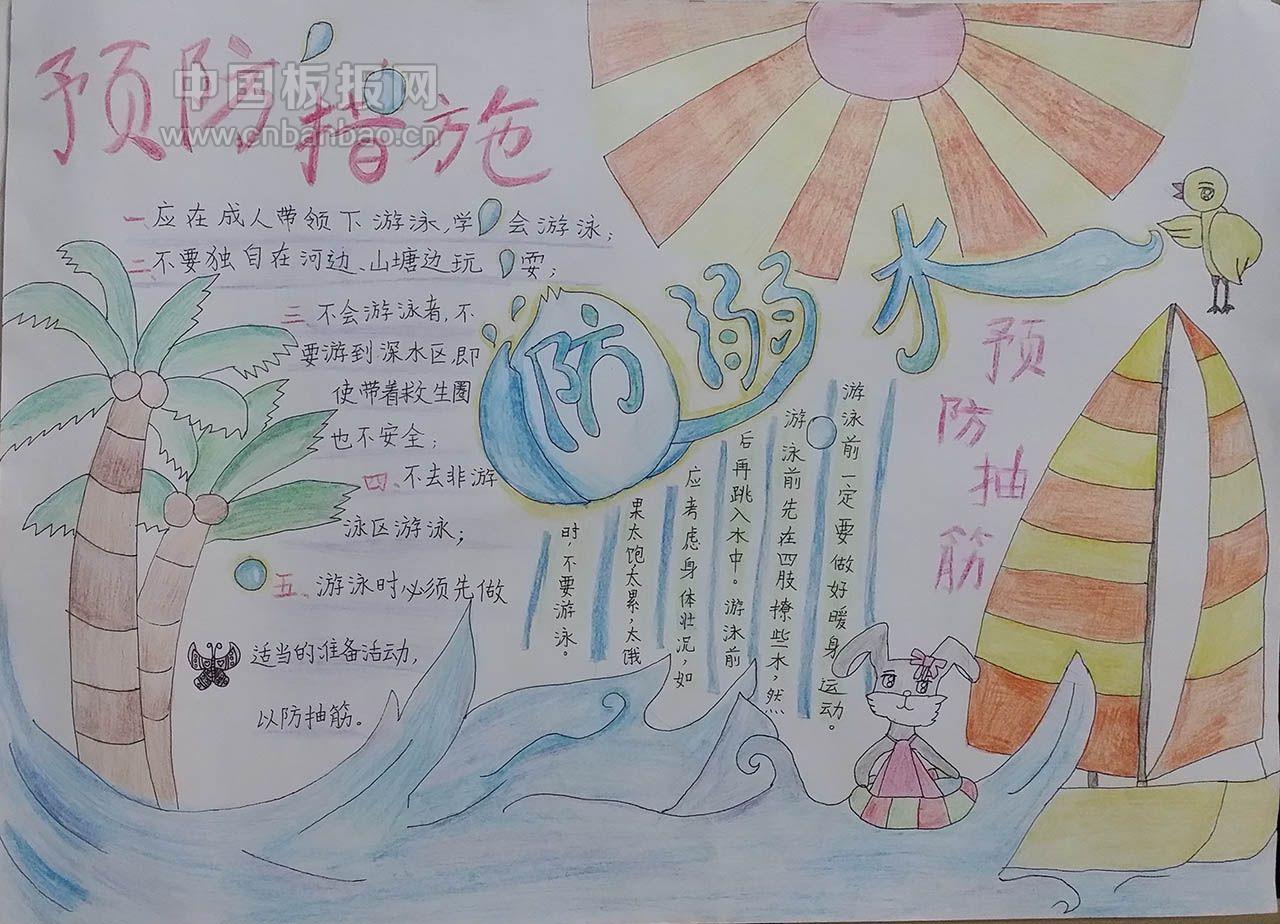 预防措施
中国板报网
www.cnbanbao.cn
一、应在成人带领下游泳,学会游泳;
二、不要独自在河边、山塘边玩耍;
三、不会游泳者,不
要游到深水区即
使带着救生圈
也不安全;
四、不去非游
泳区游泳;
五、游泳时必须先做
适当的准备活动,
以防抽筋。
防溺水
预防抽筋
游泳前一定要做好暖身运动。
游泳前先在四肢撩些水,然
后再跳入水中。游泳前
应考虑身体壮况,如
果太饱、太累,太饿
时,不要游泳。